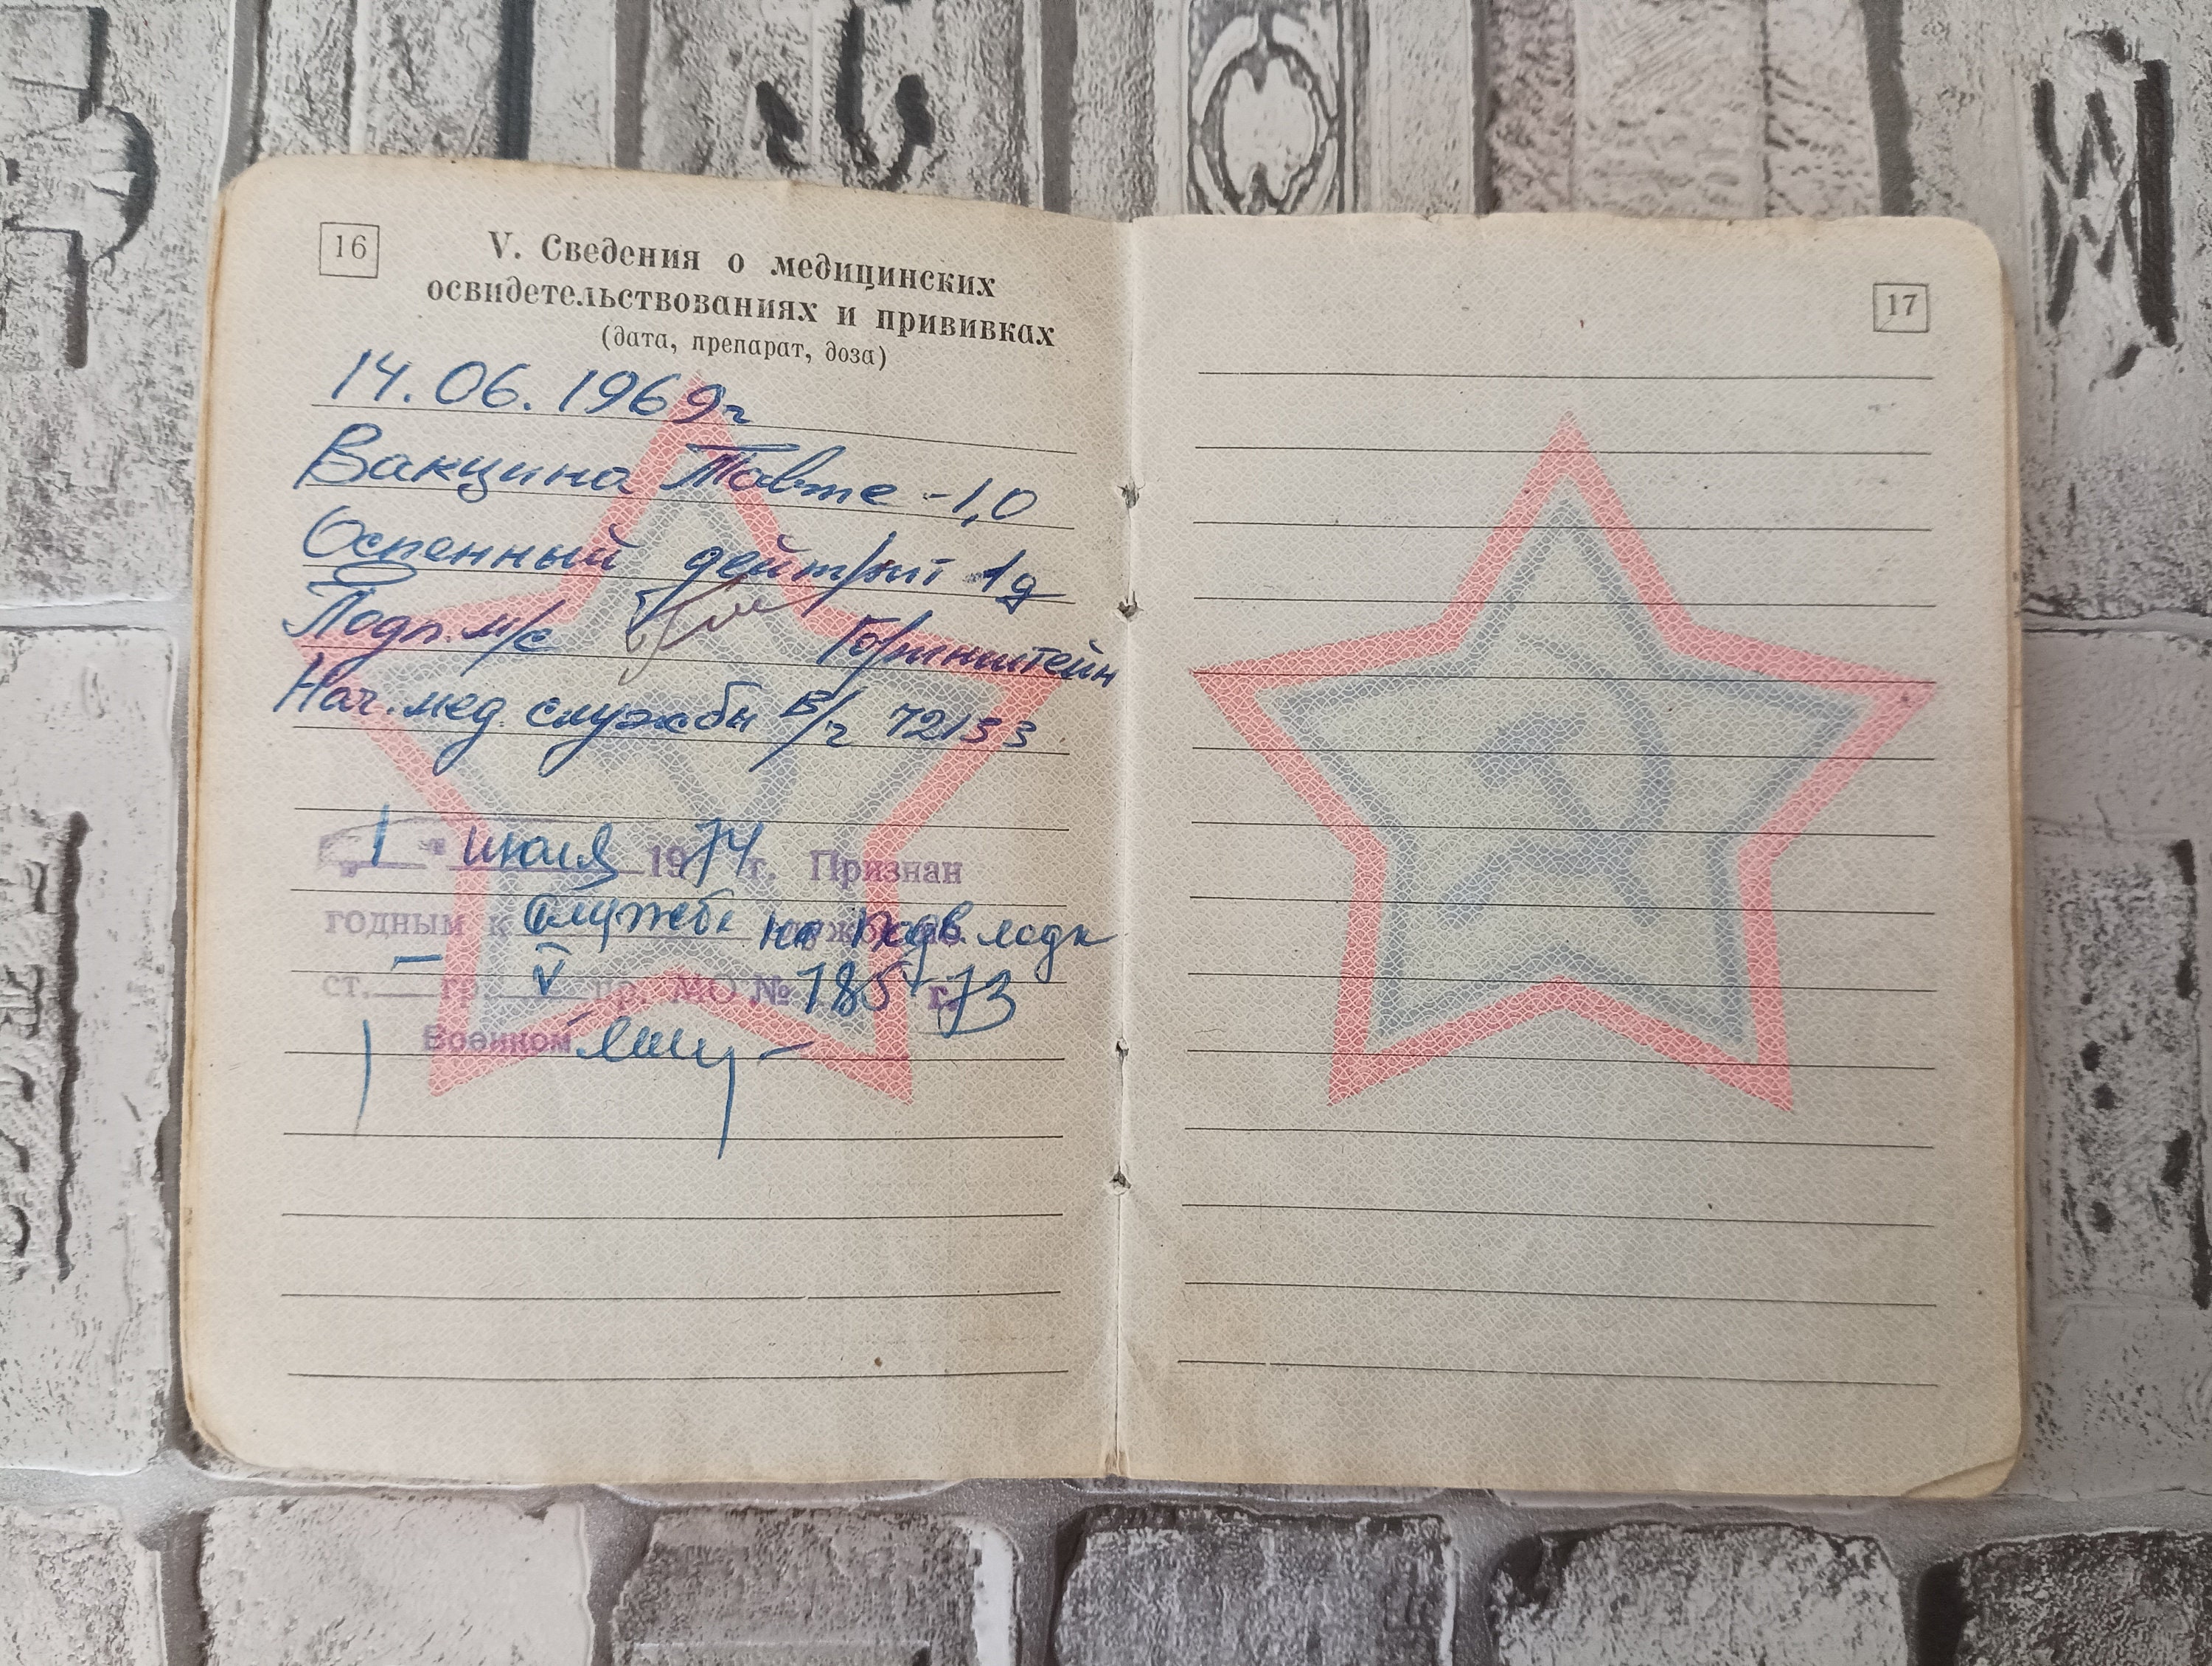 16
V. Сведения о медицинских
освидетельствованиях и прививках
(дата, препарат, доза)
14.06.1969г
Вакцина Тавте -1,0
Оспенный дейтрит 1д
Подп. м/с Горинштейн
Нач. мед. службы в/ч 72133
1 июля 1974 г. Признан
годным к службе на подв. лодк
ст. — гр. V пр. МО № 185 г. 73
Военком
17